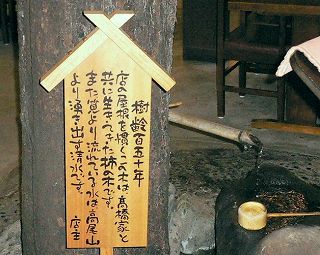 樹齢百五十年
店の屋根を貫くこの木は髙橋家と
共に生きてきた柿の木です。
また筧より流れている水は高尾山
より湧き出す清水です。
店主